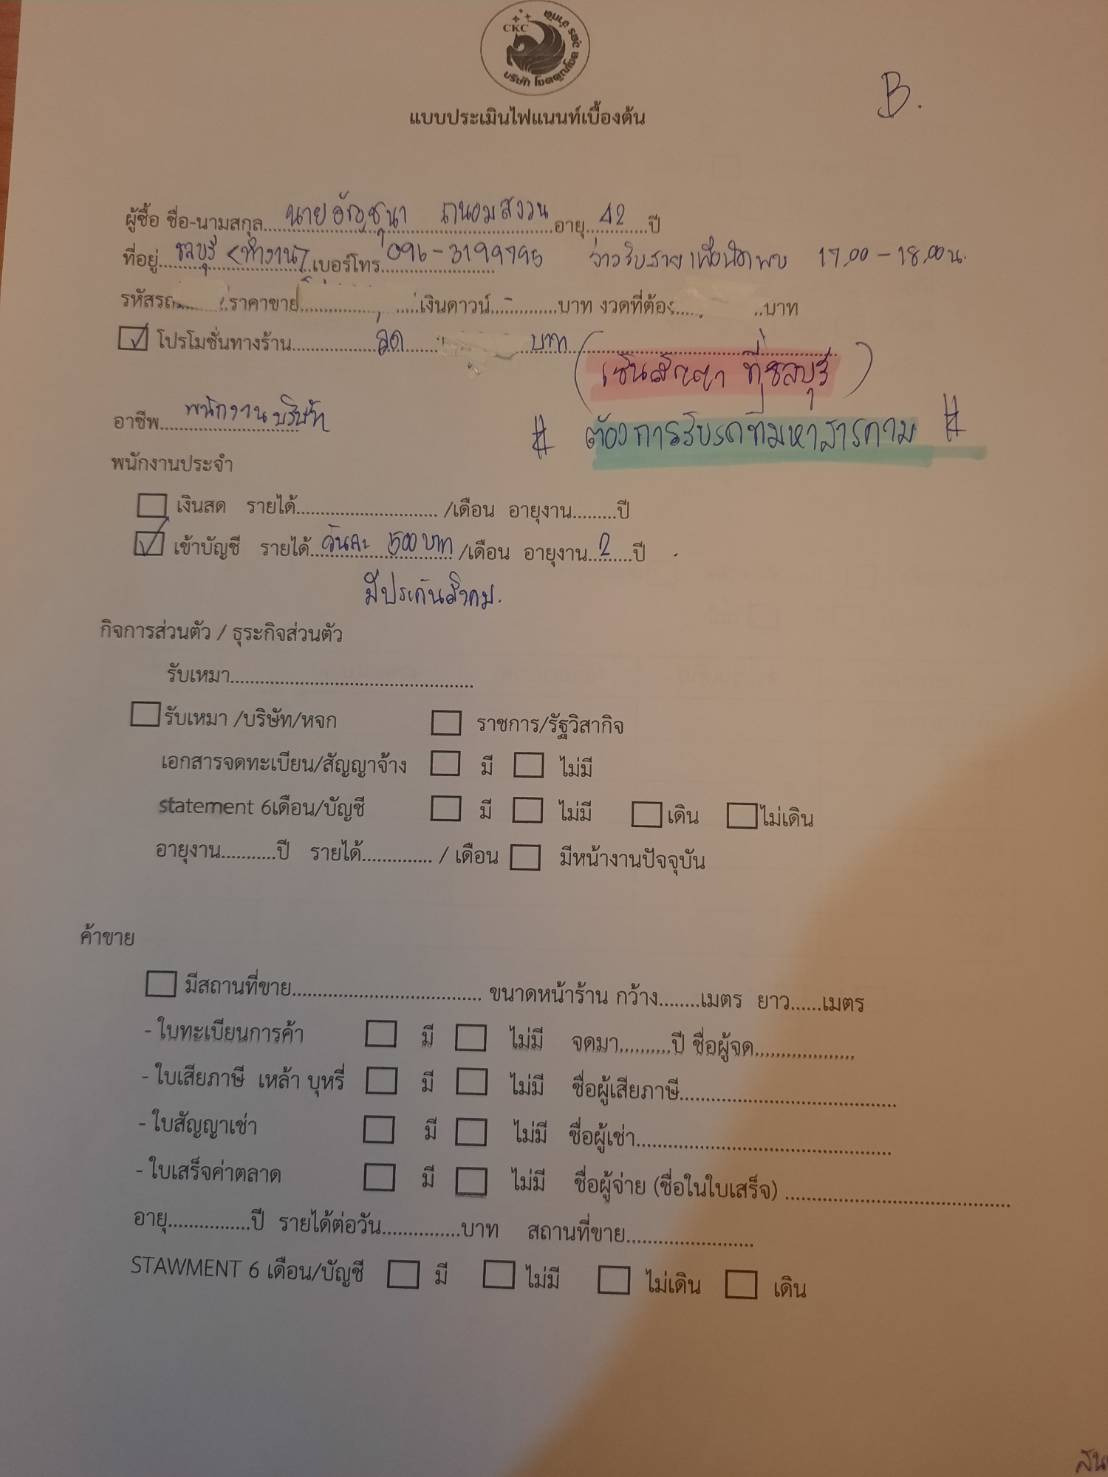 CKC
B.
แบบประเมินไฟแนนท์เบื้องต้น
ผู้ซื้อ ชื่อ-นามสกุล นาย อัญชุนา ถนอมสงวน อายุ 42 ปี
ที่อยู่ ชลบุรี <ทำงาน> เบอร์โทร 096-3199795 ว่างรับสาย เพื่อนัดพบ 17.00 - 18.00 น.
รหัสรถ ราคาขาย เงินดาวน์ - บาท งวดที่ต้อง บาท
☑ โปรโมชั่นทางร้าน ลด บาท
(เซ็นสัญญา ที่ชลบุรี)
อาชีพ พนักงานบริษัท
# ต้องการรับรถที่มหาสารคาม #
พนักงานประจำ
☐ เงินสด รายได้ /เดือน อายุงาน ปี
☑ เข้าบัญชี รายได้ วันละ 500 บาท /เดือน อายุงาน 2 ปี
มีประกันสังคม.
กิจการส่วนตัว / ธุระกิจส่วนตัว
รับเหมา
☐ รับเหมา /บริษัท/หจก ☐ ราชการ/รัฐวิสากิจ
เอกสารจดทะเบียน/สัญญาจ้าง ☐ มี ☐ ไม่มี
statement 6เดือน/บัญชี ☐ มี ☐ ไม่มี ☐ เดิน ☐ ไม่เดิน
อายุงาน ปี รายได้ / เดือน ☐ มีหน้างานปัจจุบัน
ค้าขาย
☐ มีสถานที่ขาย ขนาดหน้าร้าน กว้าง เมตร ยาว เมตร
- ใบทะเบียนการค้า ☐ มี ☐ ไม่มี จดมา ปี ชื่อผู้จด
- ใบเสียภาษี เหล้า บุหรี่ ☐ มี ☐ ไม่มี ชื่อผู้เสียภาษี
- ใบสัญญาเช่า ☐ มี ☐ ไม่มี ชื่อผู้เช่า
- ใบเสร็จค่าตลาด ☐ มี ☐ ไม่มี ชื่อผู้จ่าย (ชื่อในใบเสร็จ)
อายุ ปี รายได้ต่อวัน บาท สถานที่ขาย
STAWMENT 6 เดือน/บัญชี ☐ มี ☐ ไม่มี ☐ ไม่เดิน ☐ เดิน